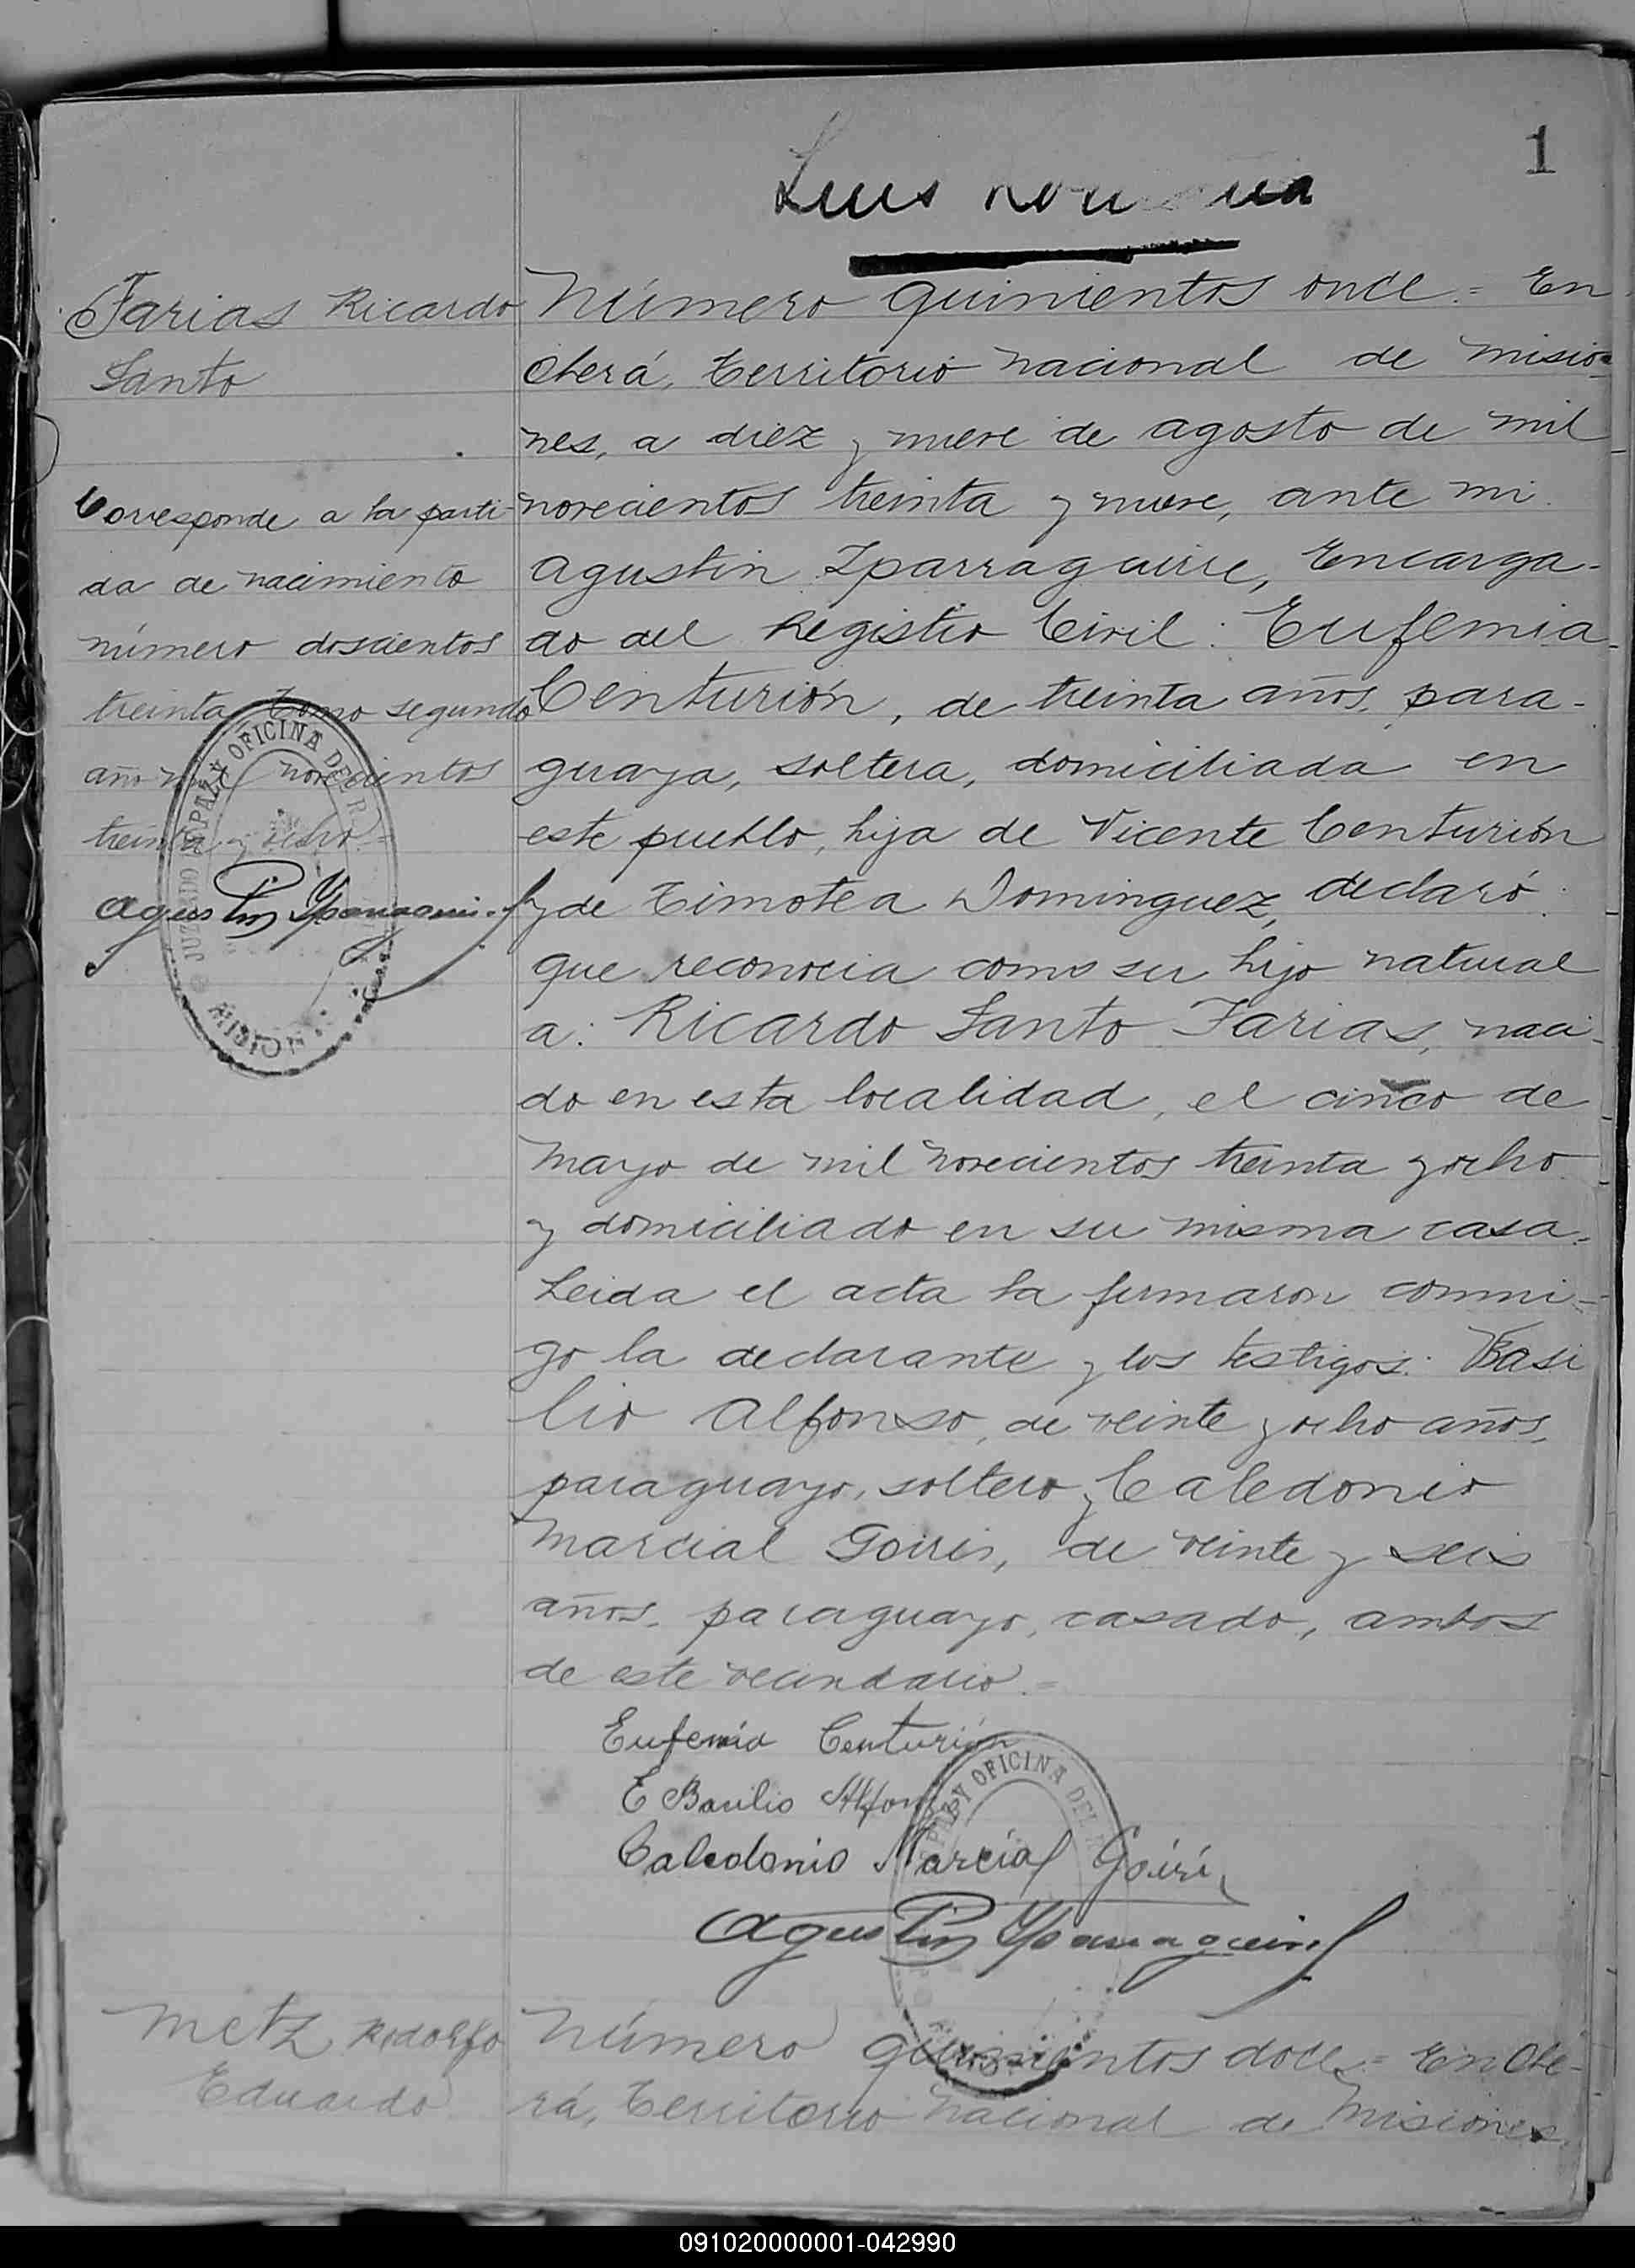 1
Luis
Farias Ricardo
Santo
Corresponde a la parti-
da de nacimiento
número doscientos
treinta tomo segundo
año mil novecientos
treinta y ocho.=
Agustin Yparraguirre
JUZGADO DE PAZ Y OFICINA DEL R
Número quinientos once.= En
Oberá, territorio nacional de Misio-
nes, a diez y nueve de agosto de mil
novecientos treinta y nueve, ante mi
Agustin Iparraguirre, Encarga-
do del Registro Civil: Eufemia
Centurión, de treinta años, para-
guaya, soltera, domiciliada en
este pueblo, hija de Vicente Centurión
y de Timotea Dominguez, declaró:
que reconocia como su hijo natural
a: Ricardo Santo Farias, naci-
do en esta localidad, el cinco de
Mayo de mil novecientos treinta y ocho
y domiciliado en su misma casa.
Leida el acta la firmaron conmi-
go la declarante y los testigos: Basi
lio Alfonso, de veinte y ocho años,
paraguayo, soltero y Caledonio
Marcial Goiris, de veinte y seis
años, paraguayo, casado, ambos
de este vecindario.=
Eufemia Centurión
E Basilio Alfonso
Caledonio Marcial Goiri
Agustin Yparraguirre
OFICINA DEL
Metz Rodolfo
Eduardo
Número quinientos doce.= En Obe-
rá, territorio nacional de Misiones,
091020000001-042990